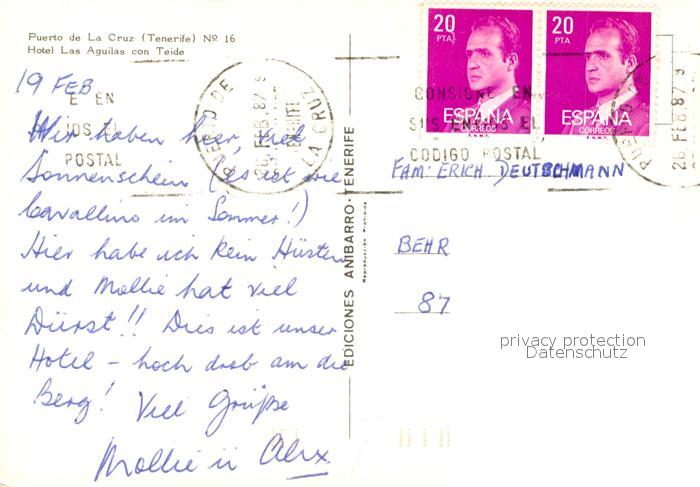 Puerto de La Cruz (Tenerife) Nº 16
Hotel Las Aguilas con Teide
19 FEB
Wir haben hier, viel
Sonnenschein (es ist wie
Cavallino im Sommer!)
Hier habe ich kein Hüsten
und Mollie hat viel
Dürst!! Dies ist unser
Hotel – hoch drob am die
Berg! Viel Grüße
Mollie ü Alex
E EN
OS EL
POSTAL
PUERTO DE
LA CRUZ
26 FEB. 87. 9
EDICIONES ANIBARRO - TENERIFE
Reproducción Prohibida
20
PTA
ESPAÑA
CORREOS
F.N.M.T.
20
PTA
ESPAÑA
CORREOS
F.N.M.T.
CONSIGNE EN
SUS ENVIOS EL
CODIGO POSTAL
PUERTO
26 FEB. 87. 9
FAM: ERICH DEUTSCHMANN
BEHR
87
privacy protection
Datenschutz